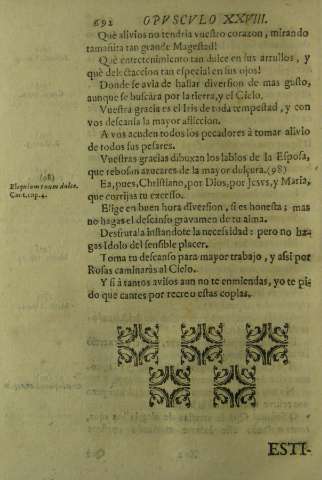 692 OPVSCVLO XXVIII.
Què alivios no tendria vuestro corazon, mirando
tamañita tan grande Magestad!
Què entretenimiento tan dulce en sus arrullos, y
què delectaccion tan especial en sus ojos!
Donde se avia de hallar diversion de mas gusto,
aunque se buscára por la tierra, y el Cielo.
Vuestra gracia es el Iris de toda tempestad, y con
vos descansa la mayor afliccion.
A vos acuden todos los pecadores à tomar alivio
de todos sus pesares.
Vuestras gracias dibuxan los labios de la Esposa,
que rebosan azucares de la mayor dulçura.(98)
(98)
Eloquium tuum dulce.
Cant. cap. 4.
Ea, pues, Christiano, por Dios, por Jesvs, y Maria,
que corrijas tu excesso.
Elige en buen hora diversion, si es honesta; mas
no hagas el descanso gravamen de tu alma.
Desfrutala instandote la necessidad: pero no ha-
gas idolo del sensible placer.
Toma tu descanso para mayor trabajo, y assi por
Rosas caminaràs al Cielo.
Y si à tantos avisos aun no te enmiendas, yo te pi-
do que cantes por recreo estas coplas.
ESTI-